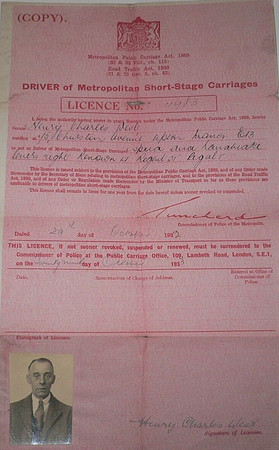 (COPY).
Metropolitan Public Carriage Act, 1869
(32 & 33 Vict. ch. 115)
Road Traffic Act, 1930
(20 & 21 Geo. 5, ch. 43)
DRIVER of Metropolitan Short-Stage Carriages
LICENCE No 4983
I, being the authority having power to grant licences under the Metropolitan Public Carriage Act, 1869, hereby
license Henry Charles West
residing at Avenue Manor E12
to act as Driver of Metropolitan Short-Stage Carriages
This Licence is issued subject to the provisions of the Metropolitan Public Carriage Act, 1869, and of any Order made
thereunder by the Secretary of State relating to metropolitan short-stage carriages, and to the provisions of the Road Traffic
Act, 1930, and of any Order or Regulation made thereunder by the Minister of Transport so far as these provisions are
applicable to drivers of metropolitan short-stage carriages.
This Licence shall remain in force for one year from the date hereof unless sooner revoked or suspended.
Trenchard
Commissioner of Police of the Metropolis.
Dated 29 October 1932
THIS LICENCE, if not sooner revoked, suspended or renewed, must be surrendered to the
Commissioner of Police at the Public Carriage Office, 109, Lambeth Road, London, S.E.1,
on the day of October 1933
Memorandum of Change of Address.
Entered at Office of
Commissioner of
Police.
Photograph of Licensee.
Henry Charles West
Signature of Licensee.